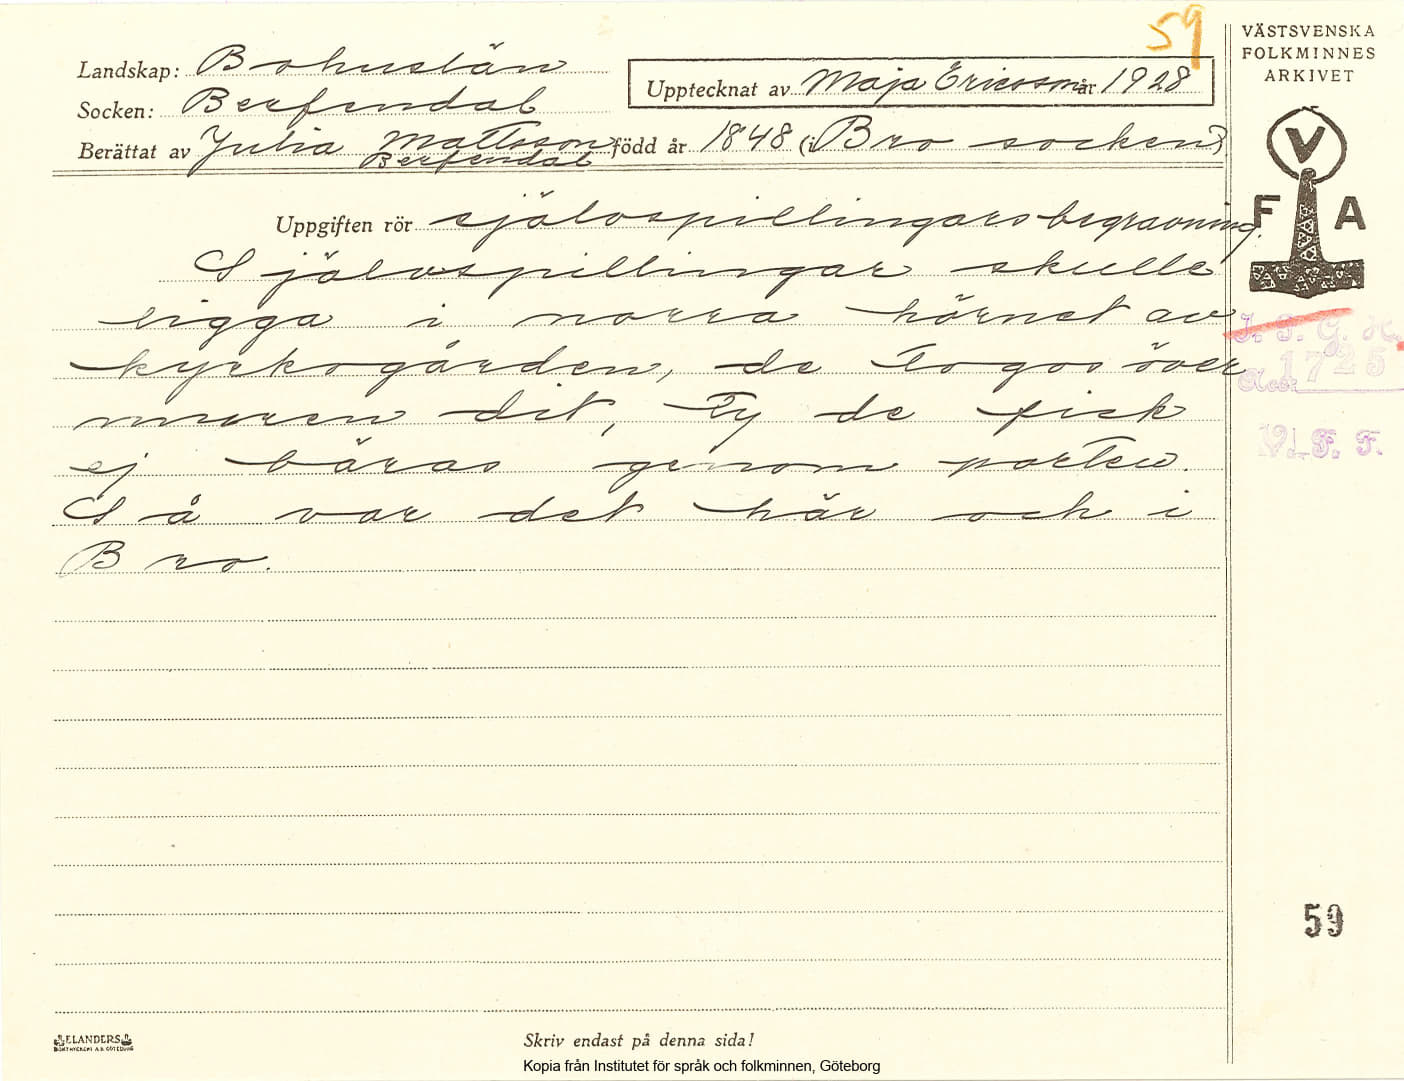 59
VÄSTSVENSKA
FOLKMINNES
ARKIVET
Landskap: Bohuslän
Upptecknat av Maja Ericsson år 1928
Socken: Bärfendal
Berättat av Julia Mattsson född år 1848 (i Bro socken)
Bärfendal
V
F A
Uppgiften rör självspillingars begravning.
Självspillingar skulle
ligga i norra hörnet av
kyrkogården, de togos över
muren dit, Ty de fick
ej bäras genom porten.
Så var det här och i
Bro.
I. F. G. H.
Acc. 1725
V. F. F.
59
ELANDERS
Skriv endast på denna sida!
Kopia från Institutet för språk och folkminnen, Göteborg